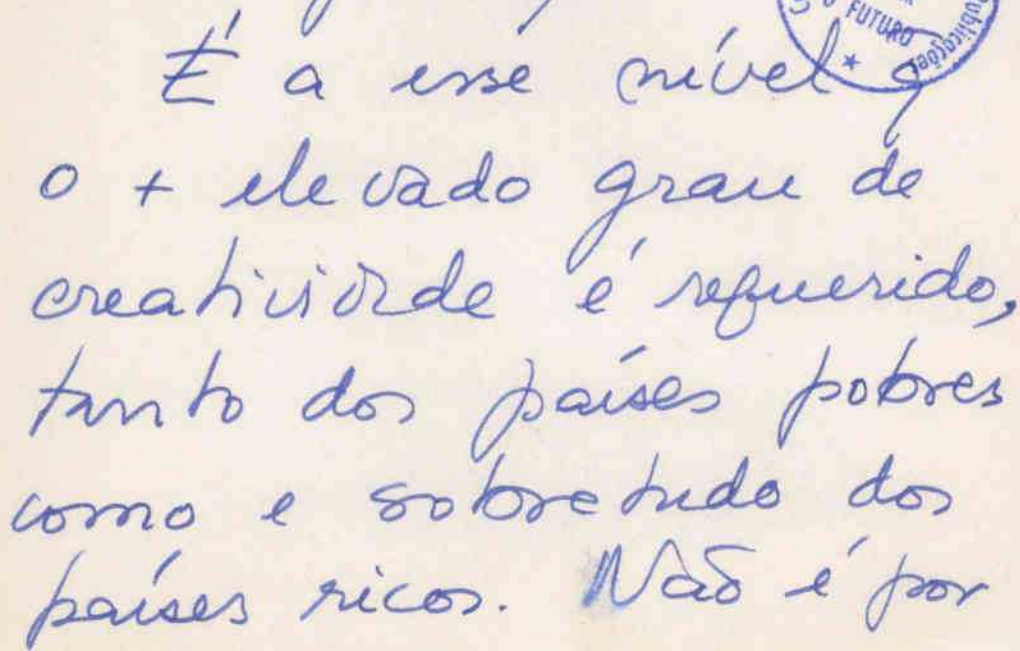 FUTURO
Publicações
É a esse nível q
o + elevado grau de
creatividade é requerido,
tanto dos países pobres
como e sobretudo dos
países ricos. Não é por